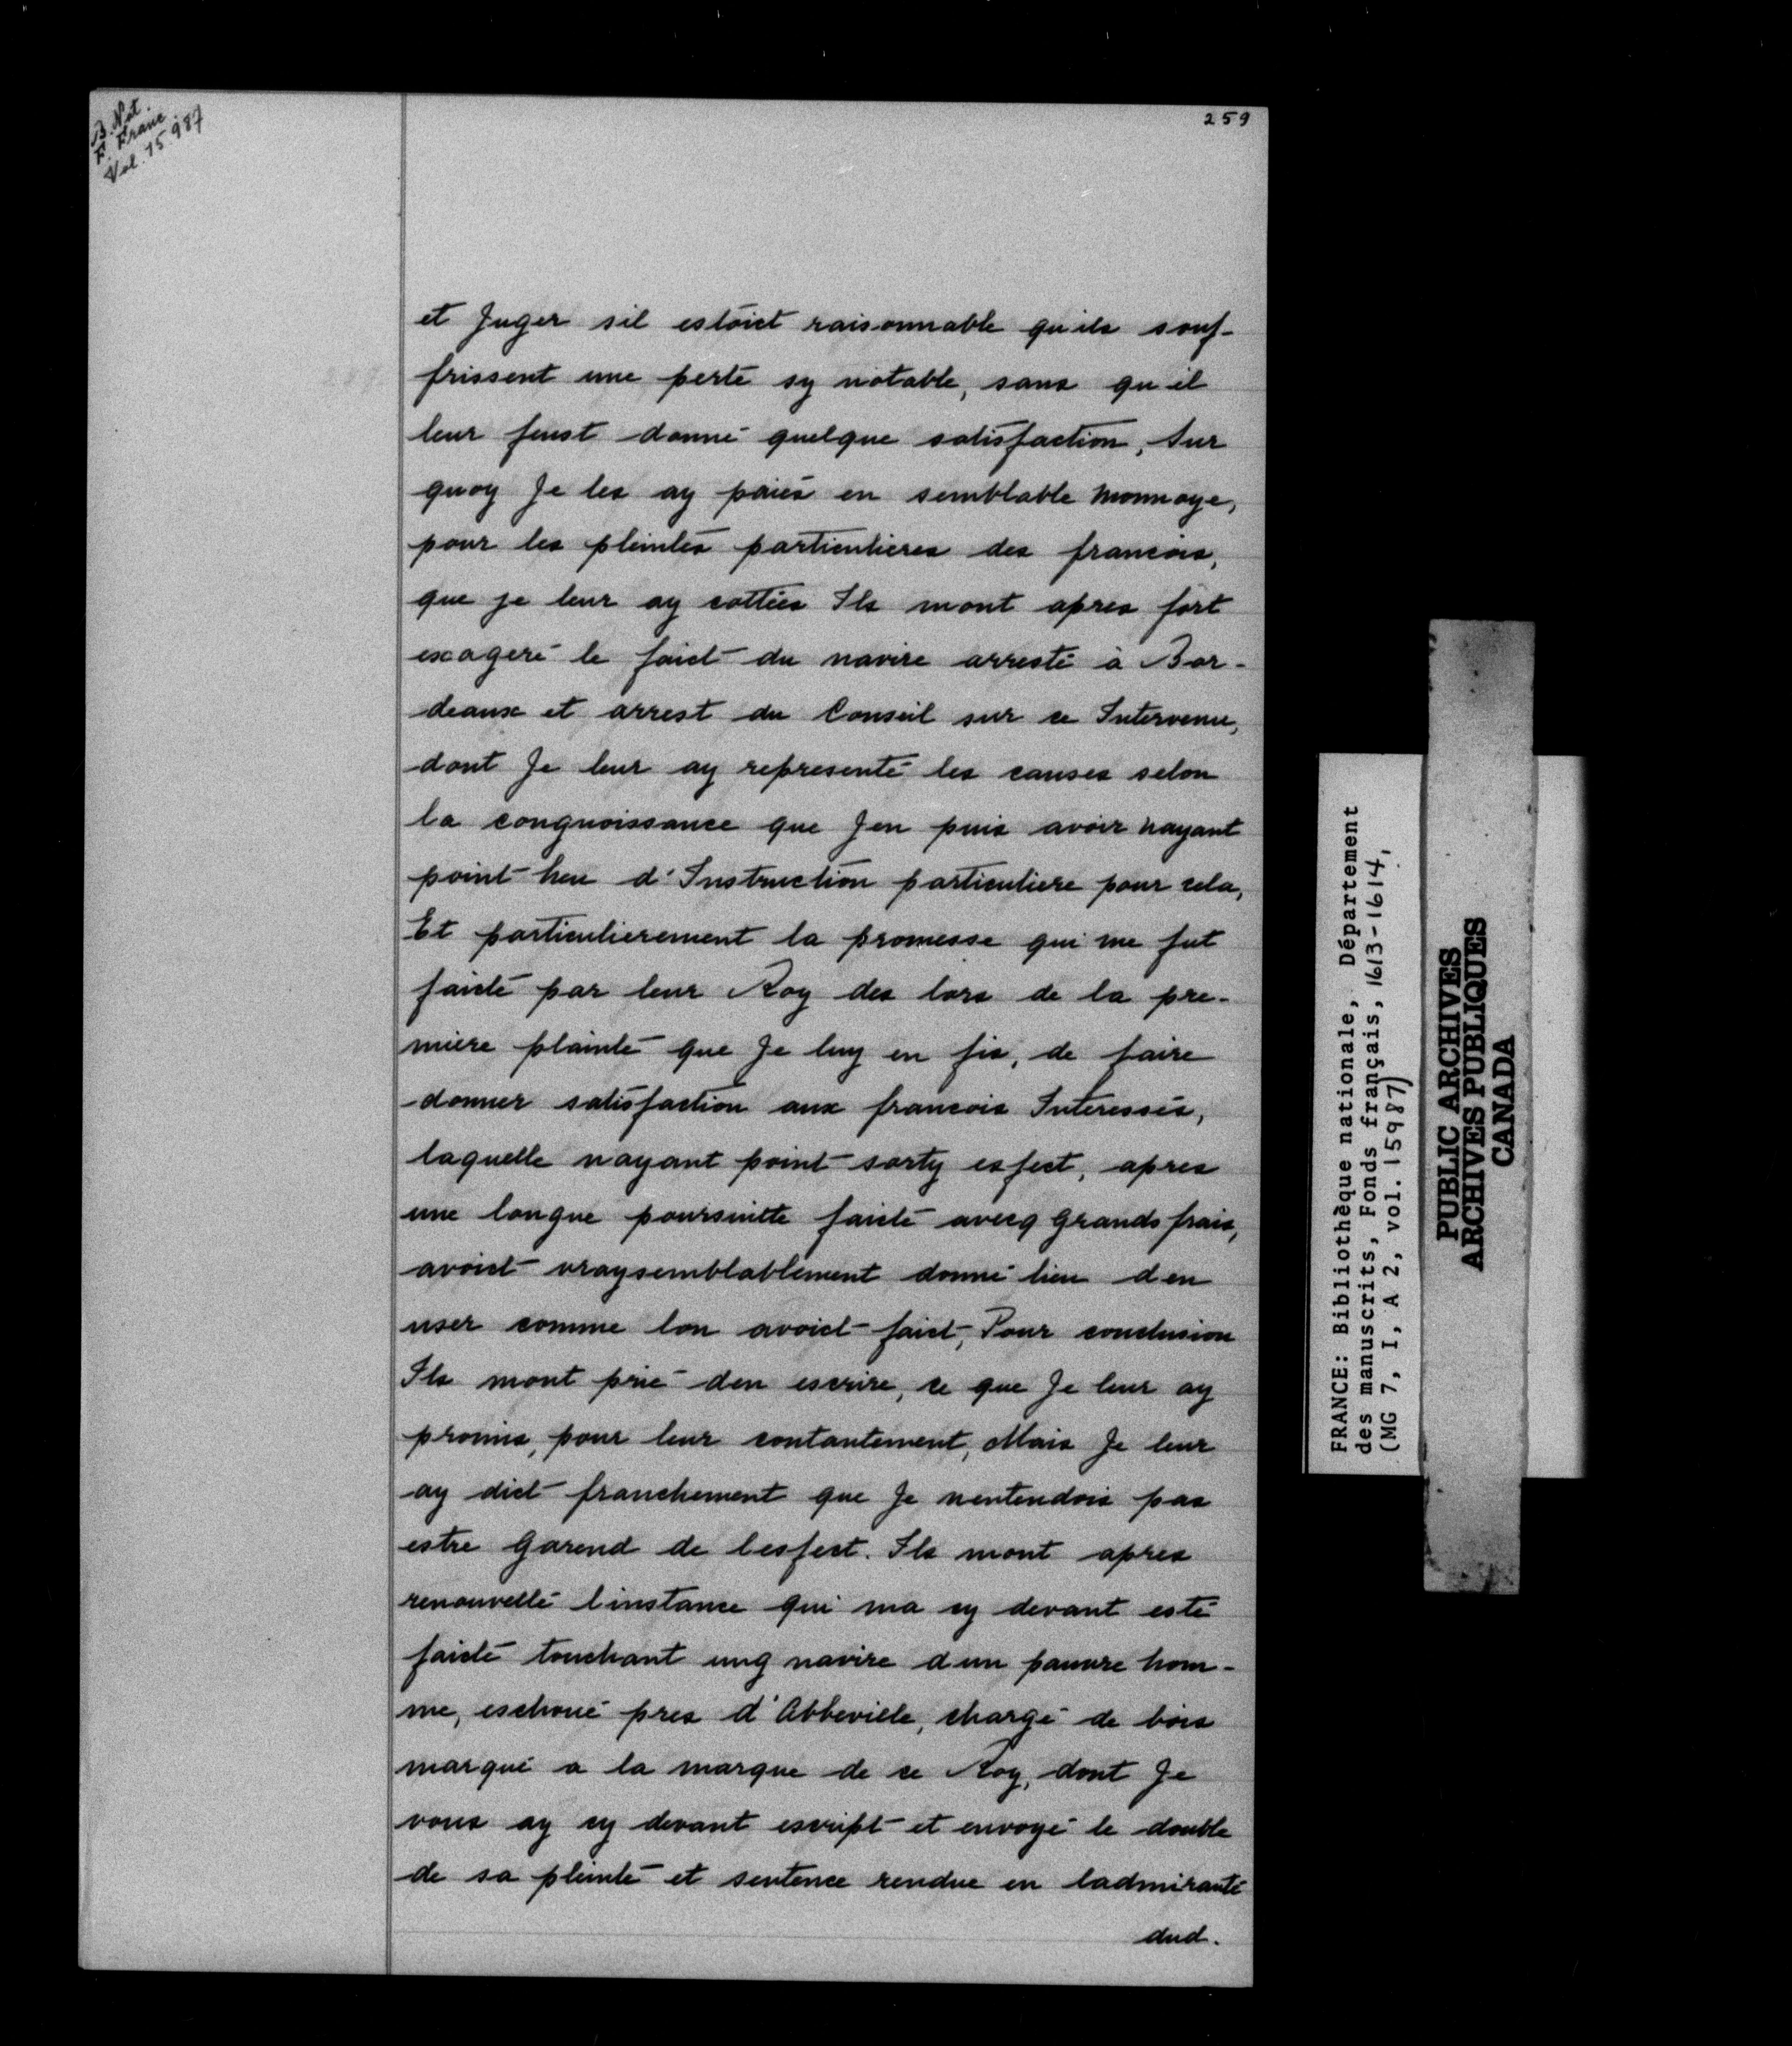 B. Nat.
F. Franc.
Vol. 15.987
259
et Juger sil estoict raisonnable quils souf-
frissent une perte sy notable, sans qu il
leur feust donné quelque satisfaction, Sur
quoy Je les ay paiés en semblable monnoye,
pour les pleintes particulieres des francois,
que je leur ay cottées Ils mont apres fort
exageré le faict du navire arresté à Bor-
deaux et arrest du Conseil sur ce Intervenu,
dont Je leur ay representé les causes selon
la congnoissance que Jen puis avoir nayant
point heu d'Instruction particuliere pour cela,
Et particulierement la promesse qui me fut
faicte par leur Roy des lors de la pre-
miere plainte que Je luy en fis, de faire
donner satisfaction aux francois Interessés,
laquelle nayant point sorty esfect, apres
une longue poursuitte faicte avecq grands frais,
avoict vraysemblablement donné lieu den
user comme lon avoict faict, Pour conclusion
Ils mont prié den escrire, ce que Je leur ay
promis, pour leur contantement, Mais Je leur
ay dict franchement que Je nentendois pas
estre garend de lesfect. Ils mont apres
renouvellé linstance qui ma cy devant esté
faicte touchant ung navire dun pauvre hom-
me, eschoué pres d'Abbeville, chargé de bois
marqué a la marque de ce Roy, dont Je
vous ay cy devant escript et envoyé le double
de sa pleinte et sentence rendue en ladmirauté
dud.
FRANCE: Bibliothèque nationale, Département
des manuscrits, Fonds français, 1613-1614,
(MG 7, I, A 2, vol. 15987)
PUBLIC ARCHIVES
ARCHIVES PUBLIQUES
CANADA